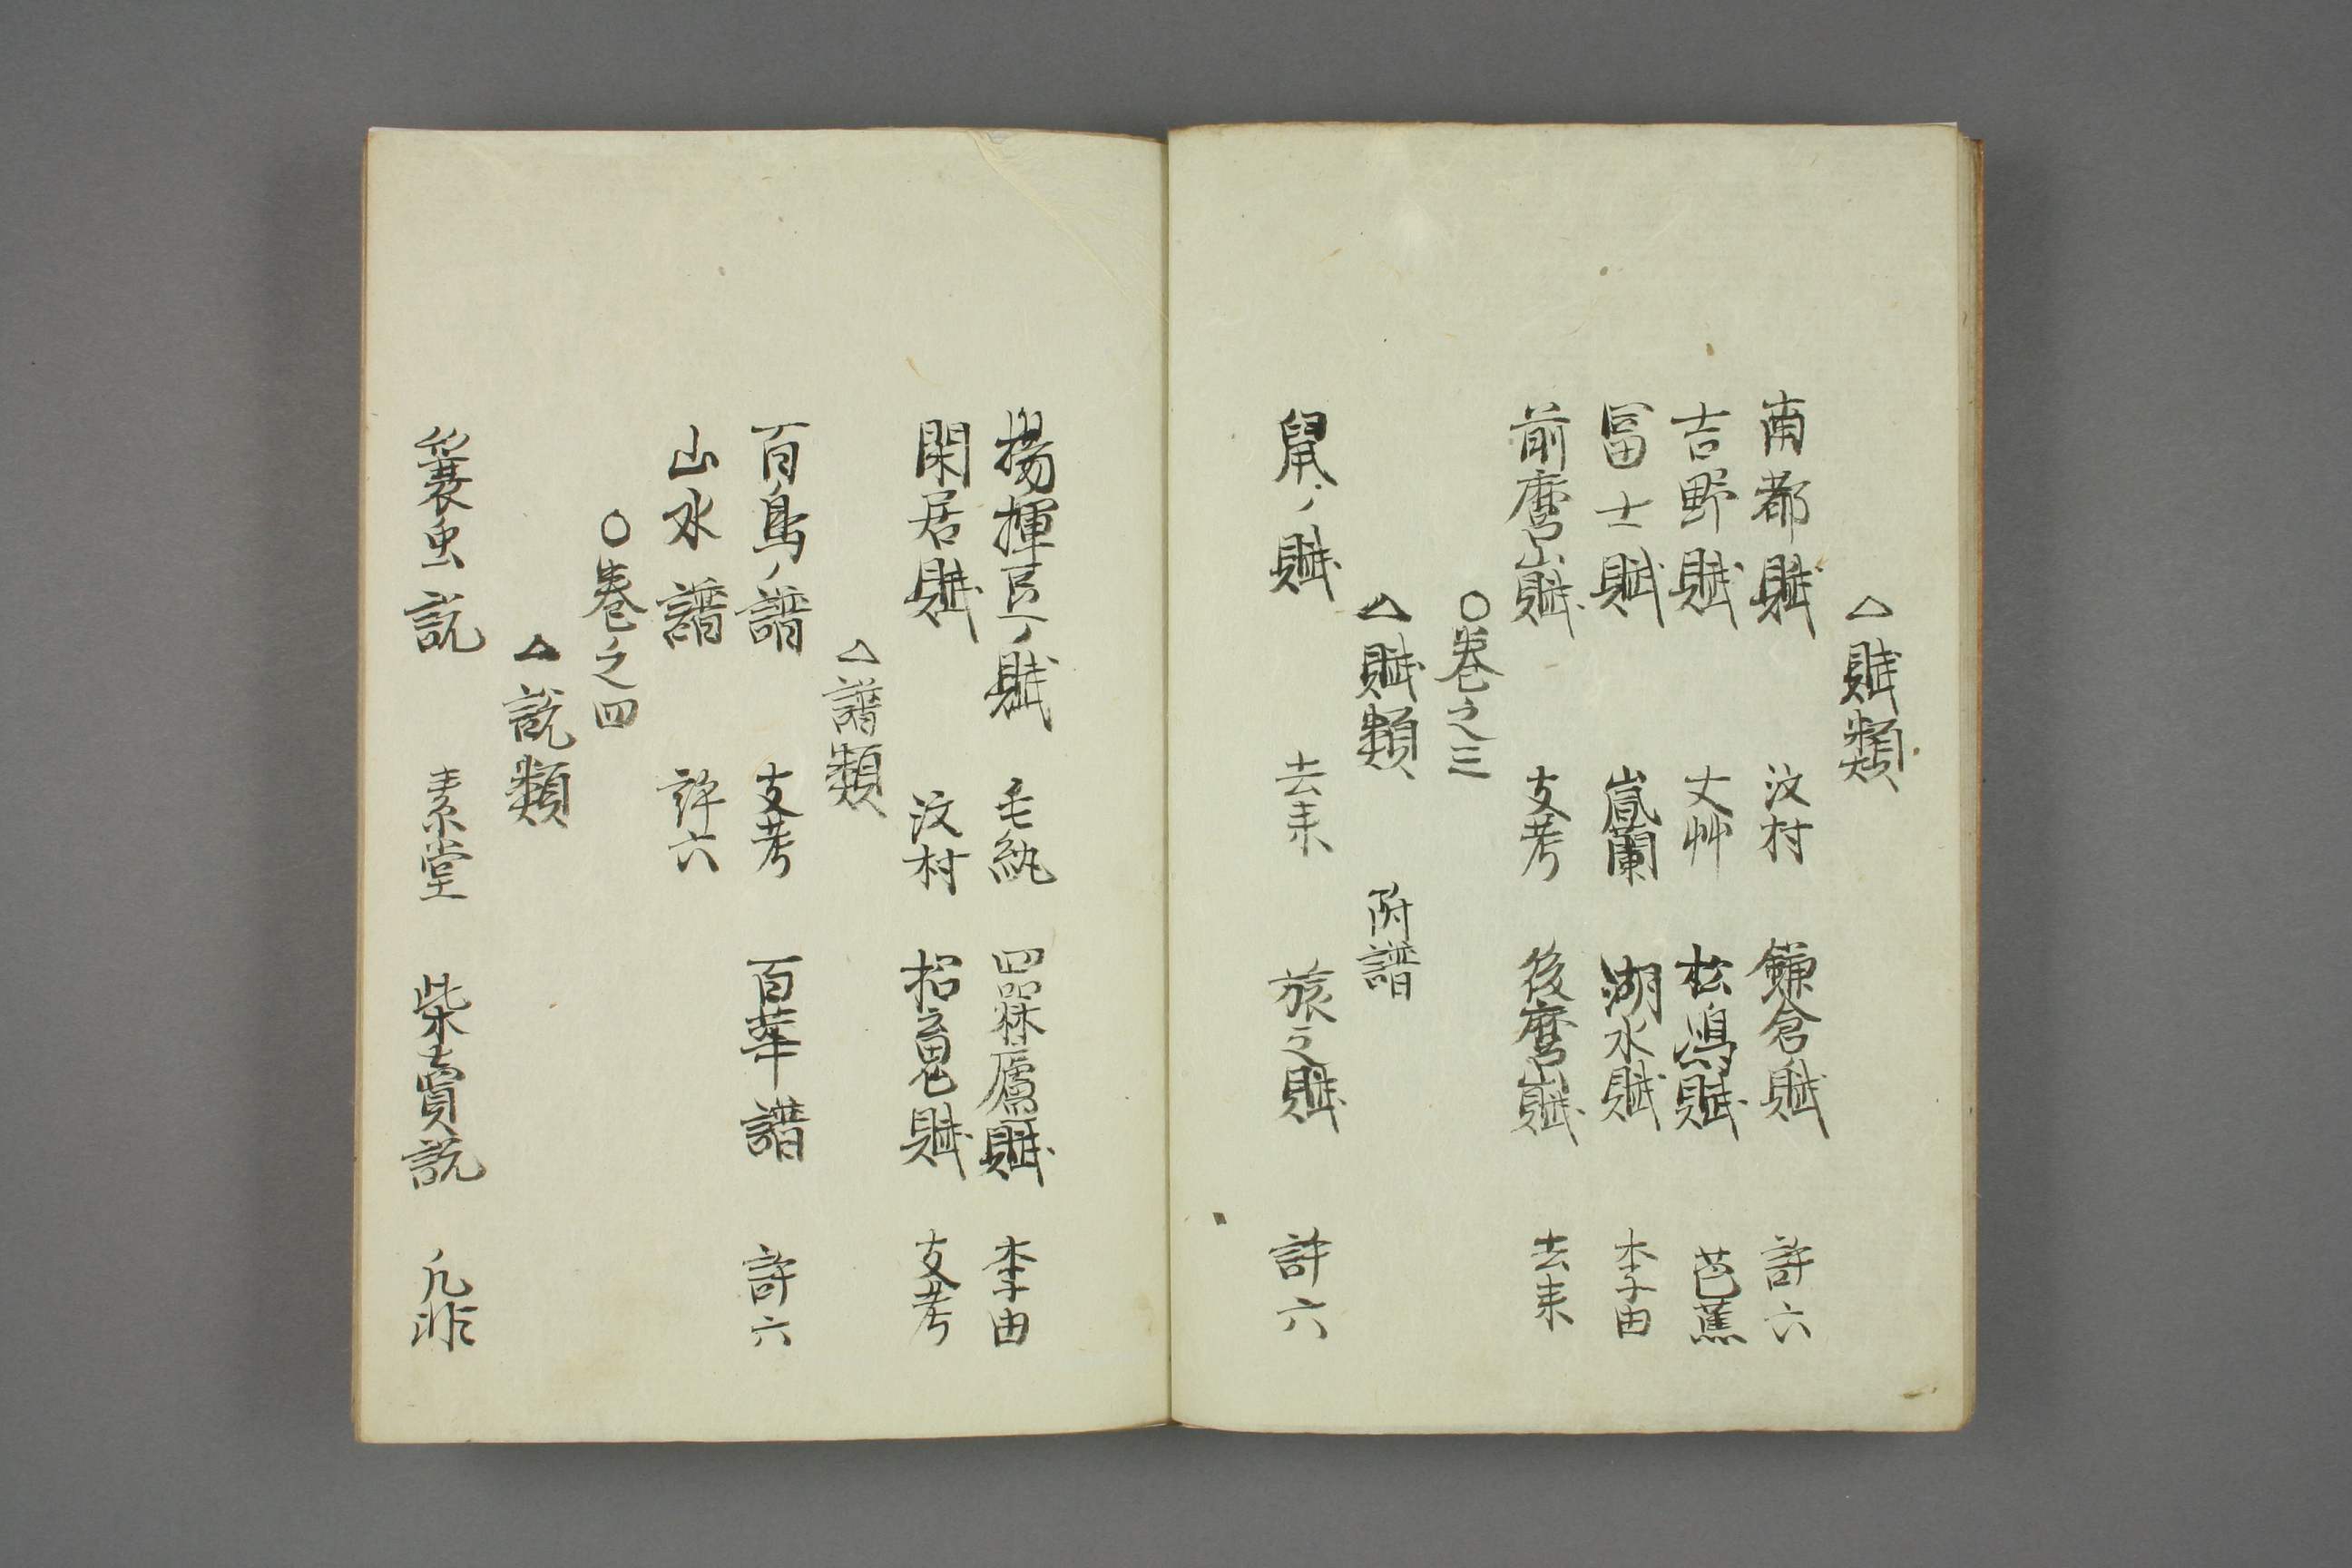 △賦類
南都賦 汶村 鎌倉賦 許六
吉野賦 丈艸 松嶋賦 芭蕉
冨士賦 嵐蘭 湖水賦 李由
前麿山賦 支考 後麿山賦 去来
○巻之三
△賦類 附譜
鼠ノ賦 去来 旅之賦 許六
揚揮豆ノ賦 毛紈 四器廬賦 李由
閑居賦 汶村 招魂賦 支考
△譜類
百鳥ノ譜 支考 百華譜 許六
山水譜 許六
○巻之四
△説類
蓑虫説 素堂 柴賣説 凡兆